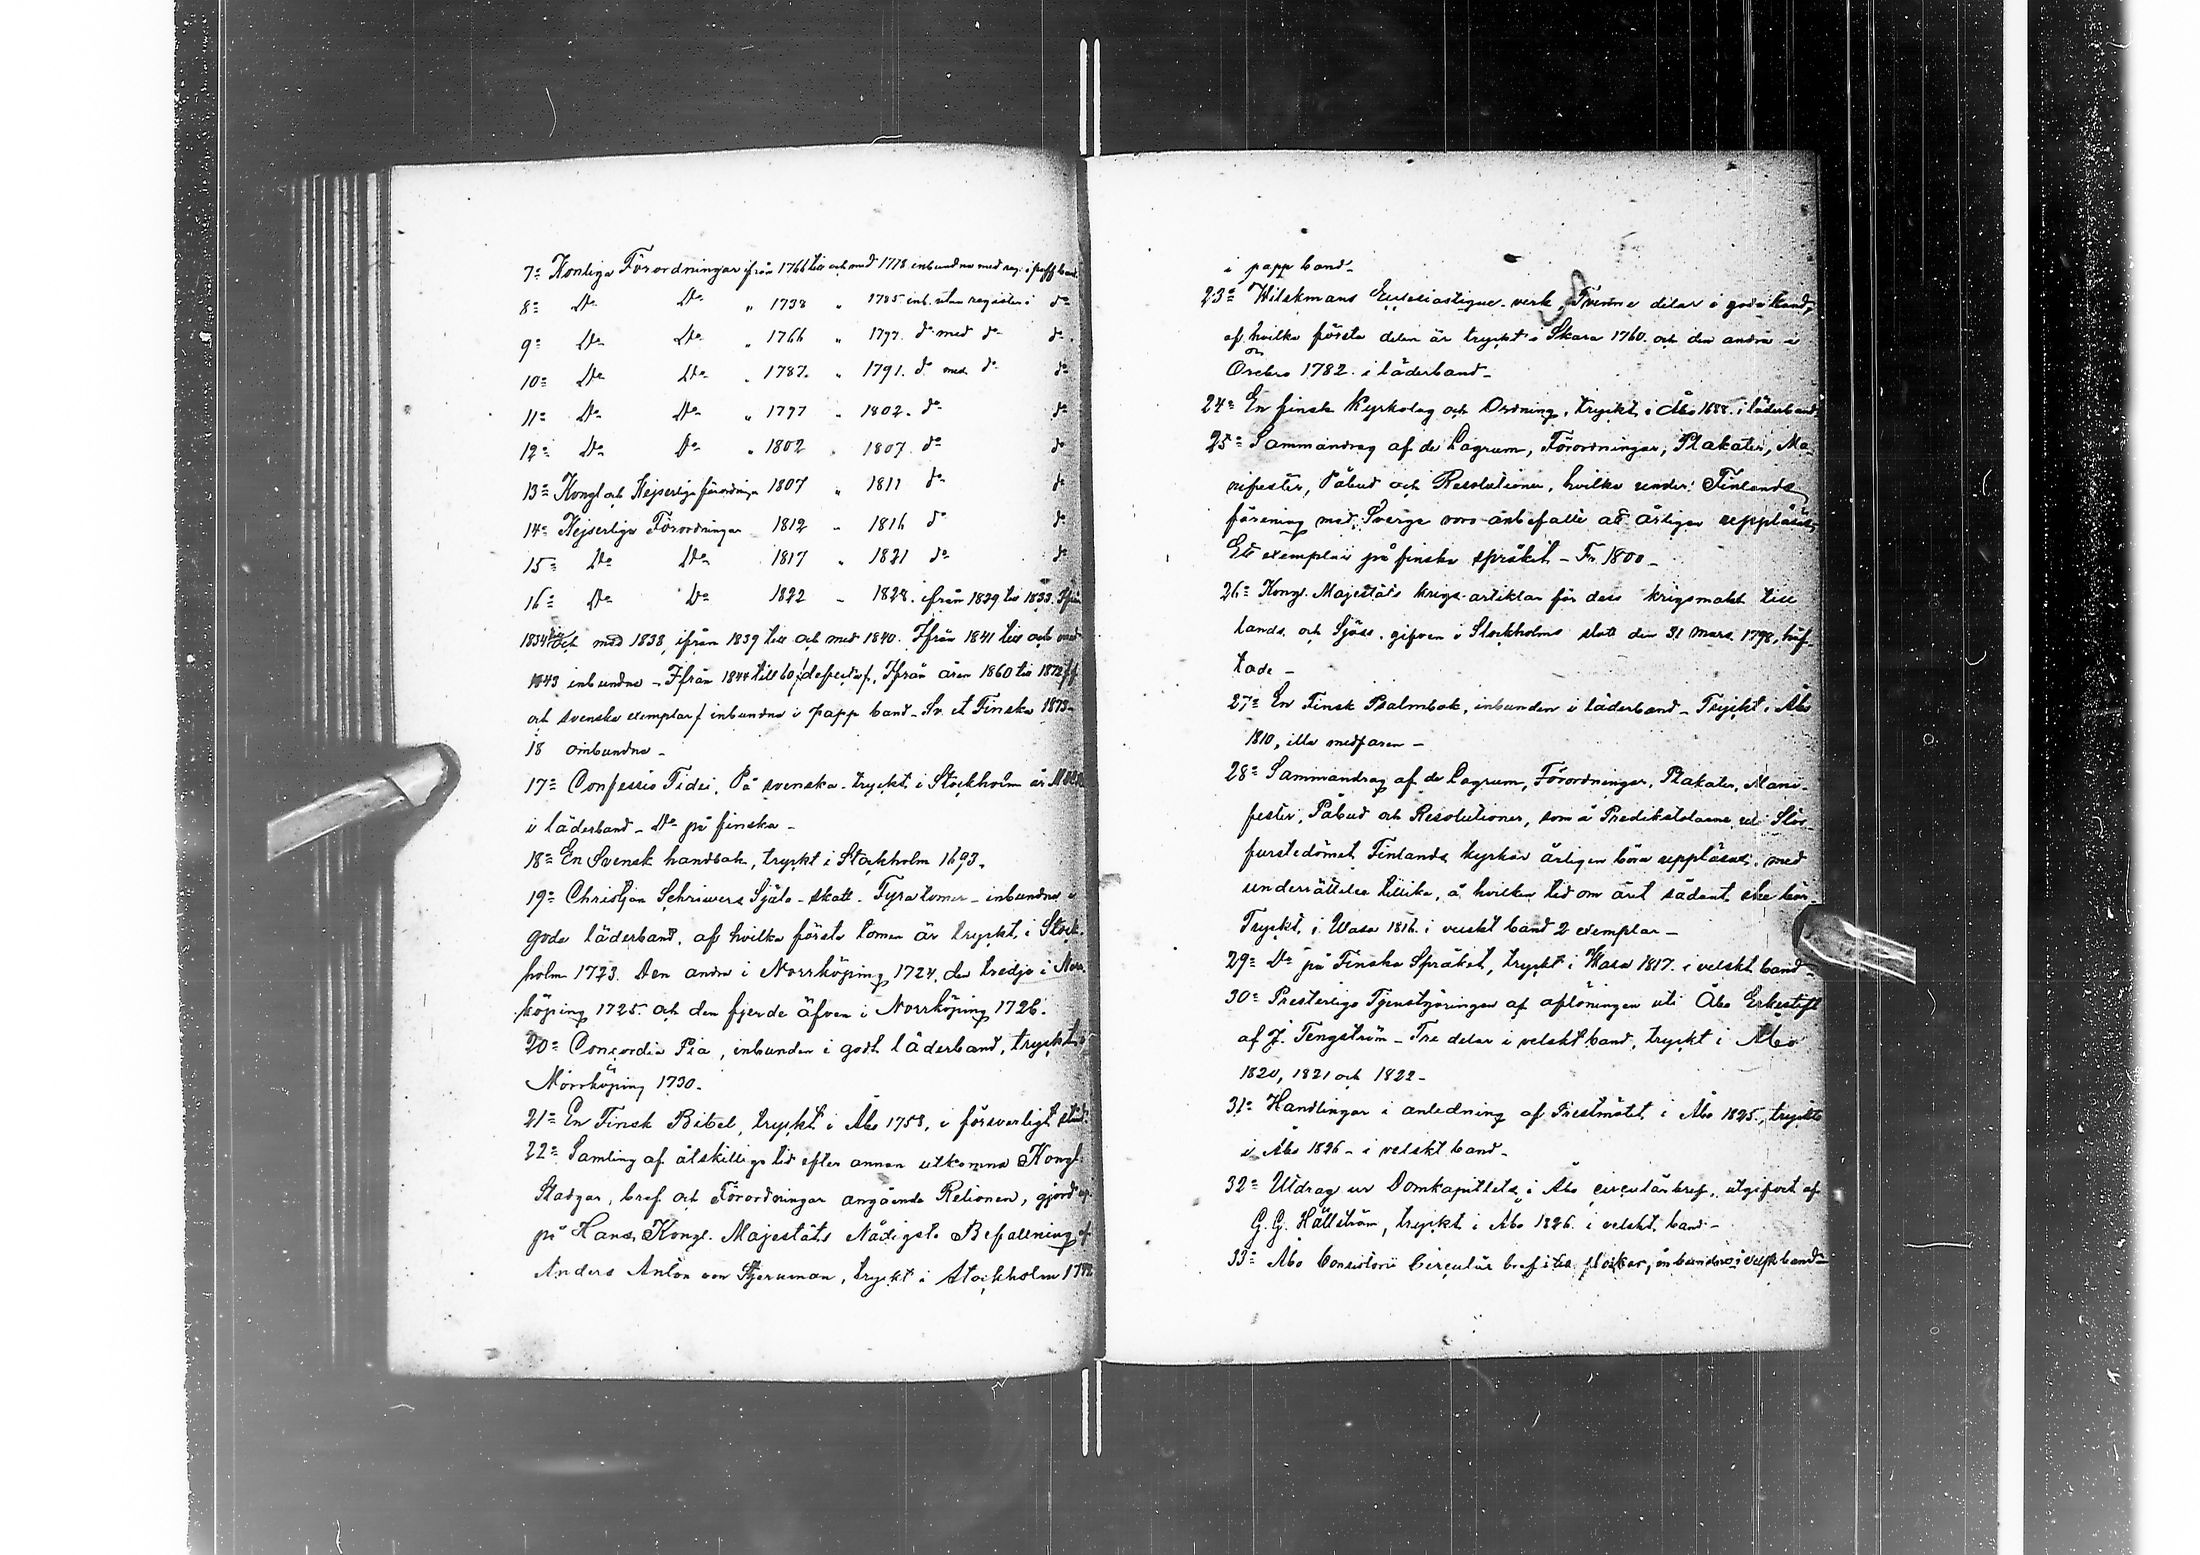 7= Konliga Förordningar ifrån 1766 till och med 1778 inbundna med reg. i papp band
8= Do Do " 1738 " 1785 inb. utan register i do
9= Do Do " 1766 " 1777. do med do do.
10= Do Do " 1787. " 1791. do med do do
11= Do Do " 1797 " 1802. do do
12= Do Do " 1802 " 1807. do do
13= Kongl och Kejserliga förordningar 1807 " 1811 do do
14= Kejserliga Förordningar 1812 " 1816 do do
15= Do Do 1817 " 1821 do do
16= Do Do 1822 " 1828. ifrån 1829 till 1833. Ifrån
1834 till och med 1838, ifrån 1839 till och med 1840. Ifrån 1841 till och med
1843 inbundna – Ifrån 1844 till 60 defecta, Ifrån åren 1860 till 1872
och svenska exemplar inbundna i papp band – Sv. et Finska 1873–
18 oinbundna –
17= Confessio Fidei, På svenska – tryckt i Stockholm år
i läderband – Do på finska –
18= En Svensk handbok, tryckt i Stockholm 1693.
19= Christian Schriwers Själa-skatt – Fyra tomer – inbundna i
goda läderband, af hvilka första tomen är tryckt i Stock-
holm 1723. Den andra i Norrköping 1724, den tredje i Norr-
köping 1725 och den fjerde äfven i Norrköping 1726.
20= Concordia Pia, inbunden i godt läderband, tryckt i
Norrköping 1730.
21= En Finsk Bibel, tryckt i Åbo 1758, i försvarligt stånd.
22= Samling af åtskilliga tid efter annan utkomna Kongl.
Stadgar, bref och Förordningar angående Relionen, gjord
på Hans Kongl. Majestäts Nådigste Befallning af
Anders Anton von Stjernman, tryckt i Stockholm
i papp band –
23= Wilskmans Ecclesiastique-verk Tvenne delar i goda band,
af hvilka första delen är tryckt i Skara 1760. och den andra i
Örebro 1782. i läderband –
24= En finsk Kyrkolag och Ordning, tryckt i Åbo 1688. i läderband
25= Sammandrag af de Lagrum, Förordningar, Plakater, Ma-
nifester, Påbud och Resolutioner, hvilka under Finlands
förening med Sverge voro anbefalte att årligen uppläsas,
Ett exemplar på finska språket – Fr. 1800 –
26= Kongl. Majestäts krigs-artiklar för dess krigsmakt till
lands och Sjöss, gifven i Stockholms slott den 31 Mars 1798, häf-
tade –
27= En Finsk Psalmbok, inbunden i läderband – Tryckt i Åbo
1810, illa medfaren –
28= Sammandrag af de Lagrum, Förordningar, Plakater, Mani-
fester, Påbud och Resolutioner, som å Predikstolarne uti Stor-
furstedömet Finlands kyrkor årligen böra uppläsas, med
underrättelse tillika, å hvilken tid om året sådant ske bör –
Tryckt, i Wasa 1816. i velskt band 2 exemplar –
29= Do på Finska Språket, tryckt i Wasa 1817. i velskt band –
30= Presterliga Tjenstgöringen af aflöningen uti Åbo Erkestift
af J. Tengström – Tre delar i velskt band, tryckt i Åbo
1820, 1821 och 1822 –
31= Handlingar i anledning af Prestmötet i Åbo 1825, tryckte
i Åbo 1826 – i velskt band –
32= Utdrag ur Domkapitlets i Åbo circulärbref, utgifvet af
G. G. Hällström, tryckt i Åbo 1826. i velskt band –
33= Åbo Consistorii Circulär bref inbundne i velskt band –